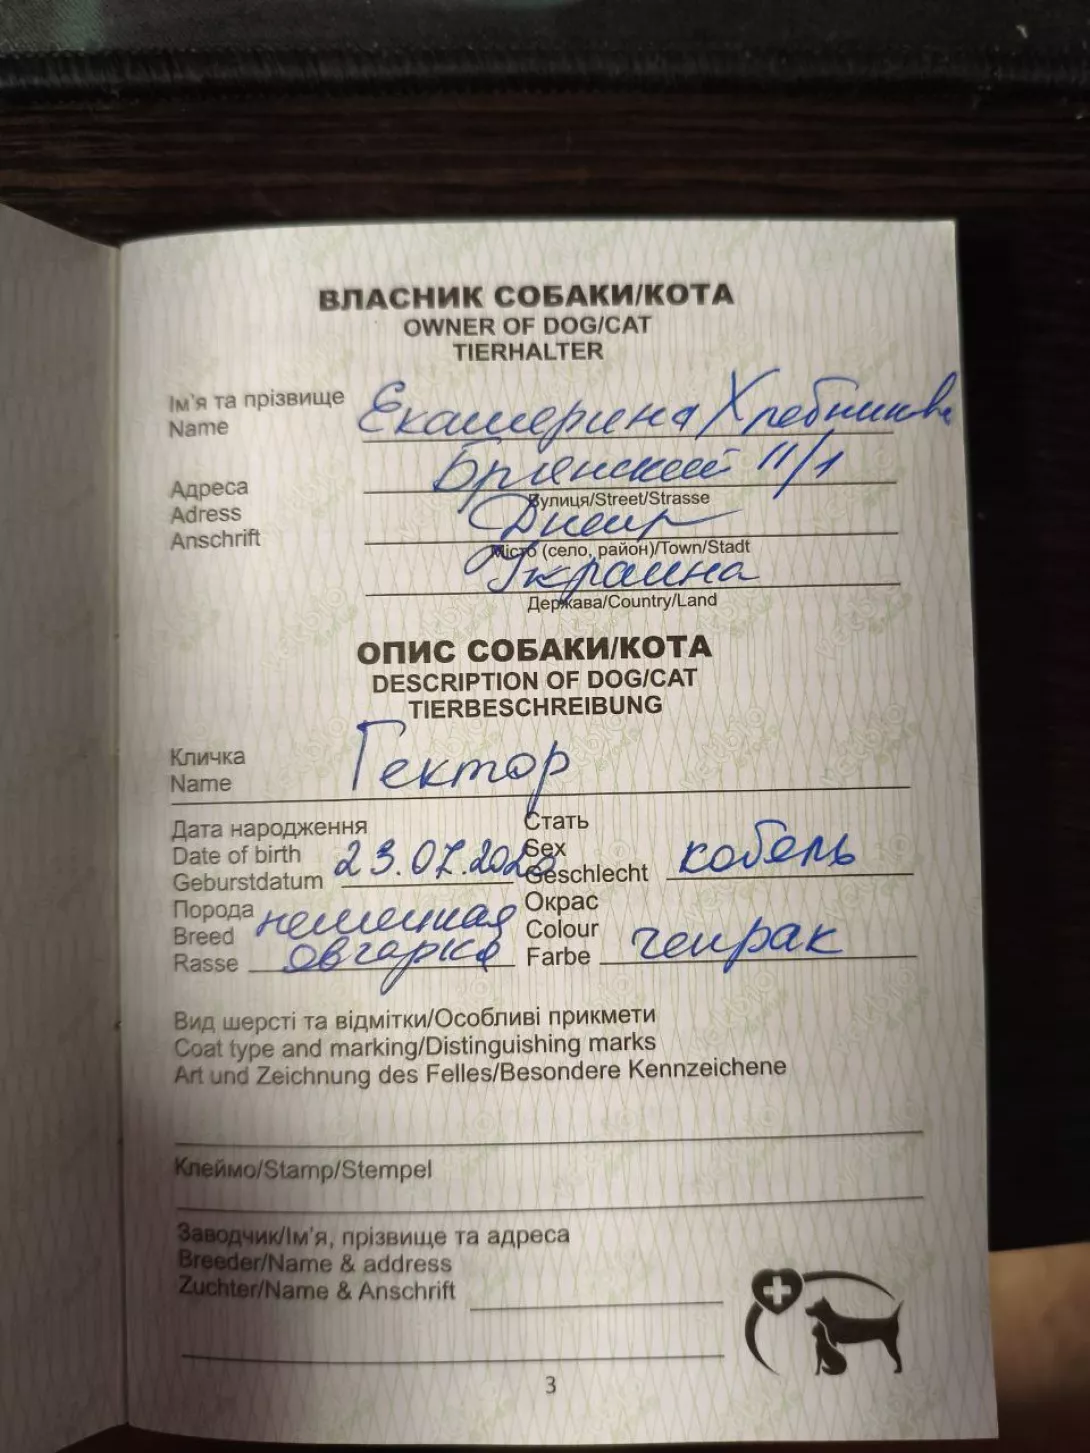 ВЛАСНИК СОБАКИ/КОТА
OWNER OF DOG/CAT
TIERHALTER
Ім'я та прізвище
Name
Екатерина Хребникова
Адреса
Adress
Anschrift
Брянский 11/1
Вулиця/Street/Strasse
Днепр
Місто (село, район)/Town/Stadt
Украина
Держава/Country/Land
ОПИС СОБАКИ/КОТА
DESCRIPTION OF DOG/CAT
TIERBESCHREIBUNG
Кличка
Name
Гектор
Дата народження
Date of birth
Geburstdatum
23.07.2020
Стать
Sex
Geschlecht
кобель
Порода
Breed
Rasse
немецкая
овчарка
Окрас
Colour
Farbe
чепрак
Вид шерсті та відмітки/Особливі прикмети
Coat type and marking/Distinguishing marks
Art und Zeichnung des Felles/Besondere Kennzeichene
Клеймо/Stamp/Stempel
Заводчик/Ім'я, прізвище та адреса
Breeder/Name & address
Zuchter/Name & Anschrift
3